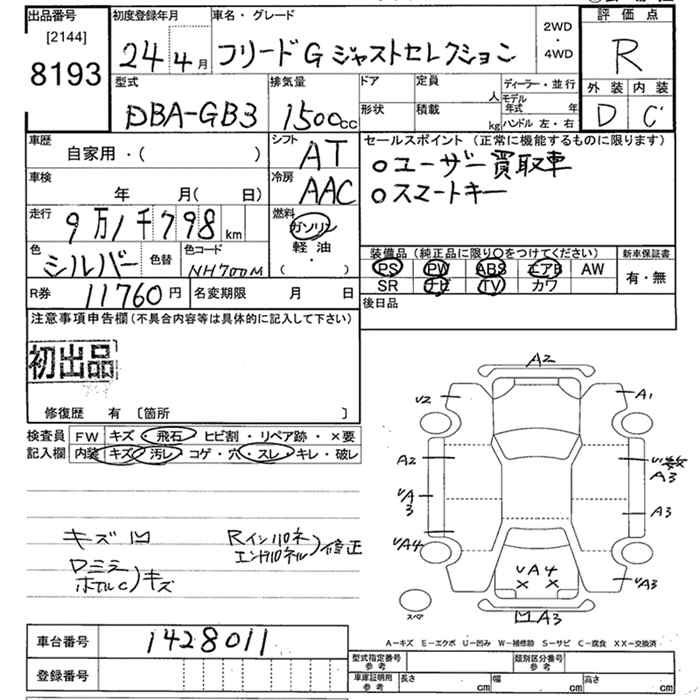 出品番号
[2144]
8193
初度登録年月
24年4月
車名・グレード
フリードG ジャストセレクション
2WD
・
4WD
評価点
R
外装 内装
D C
型式
DBA-GB3
排気量
1500cc
ドア
定員
人
形状
積載
kg
ディーラー・並行
モデル年式 年
ハンドル 左・右
車歴
自家用・( )
シフト
AT
セールスポイント(正常に機能するものに限ります)
○ユーザー買取車
○スマートキー
車検
年 月(日)
冷房
AAC
走行
9万1千798km
燃料
ガソリン
軽油
( ・ )
色
シルバー
色替
色コード
NH700M
装備品(純正品に限り○をつけてください)
新車保証書
PS PW ABS エアB AW
SR ナビ TV カワ
有・無
R券
11760円
名変期限 月 日
後日品
注意事項申告欄(不具合内容等は具体的に記入して下さい)
初出品
修復歴 有 〔箇所 〕
検査員 FW キズ・飛石・ヒビ割・リペア跡・×要
記入欄 内装 キズ・汚レ・コゲ・穴・スレ・キレ・破レ
キズ凹
Rインパネ
エンドパネル)修正
ロミラ
ホイルC)キズ
A2
U2
A1
A2
A3
UA3
A3
UA4
UA4
× ×
UA3
凹A3
スペア
A-キズ E-エクボ U-凹み W-補修跡 S-サビ C-腐食 XX-交換済
車台番号
1428011
登録番号
型式指定番号
参考
類別区分番号
参考
車庫証明用
参考
長さ cm
幅 cm
高さ cm